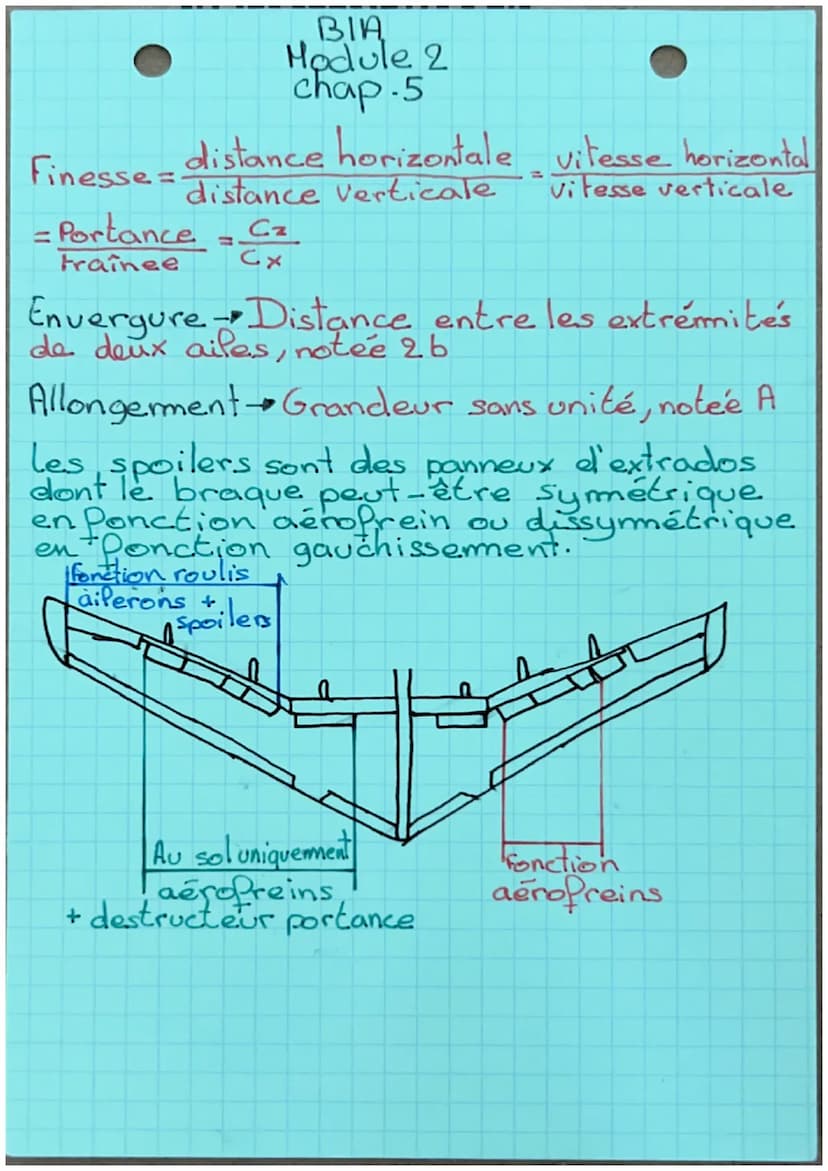 BIA
Module 2
chap.5
Finesse = distance horizontale / distance verticale = vitesse horizontal / vitesse verticale
= Portance / traînee = Cz / Cx
Envergure → Distance entre les extrémités
de deux ailes, notée 2b
Allongement → Grandeur sans unité, notée A
Les spoilers sont des panneux d'extrados
dont le braque peut-être symétrique
en fonction aérofrein ou dissymétrique
en fonction gauchissement.
fonction roulis
ailerons +
spoilers
Au sol uniquement
aérofreins
+ destructeur portance
fonction
aérofreins